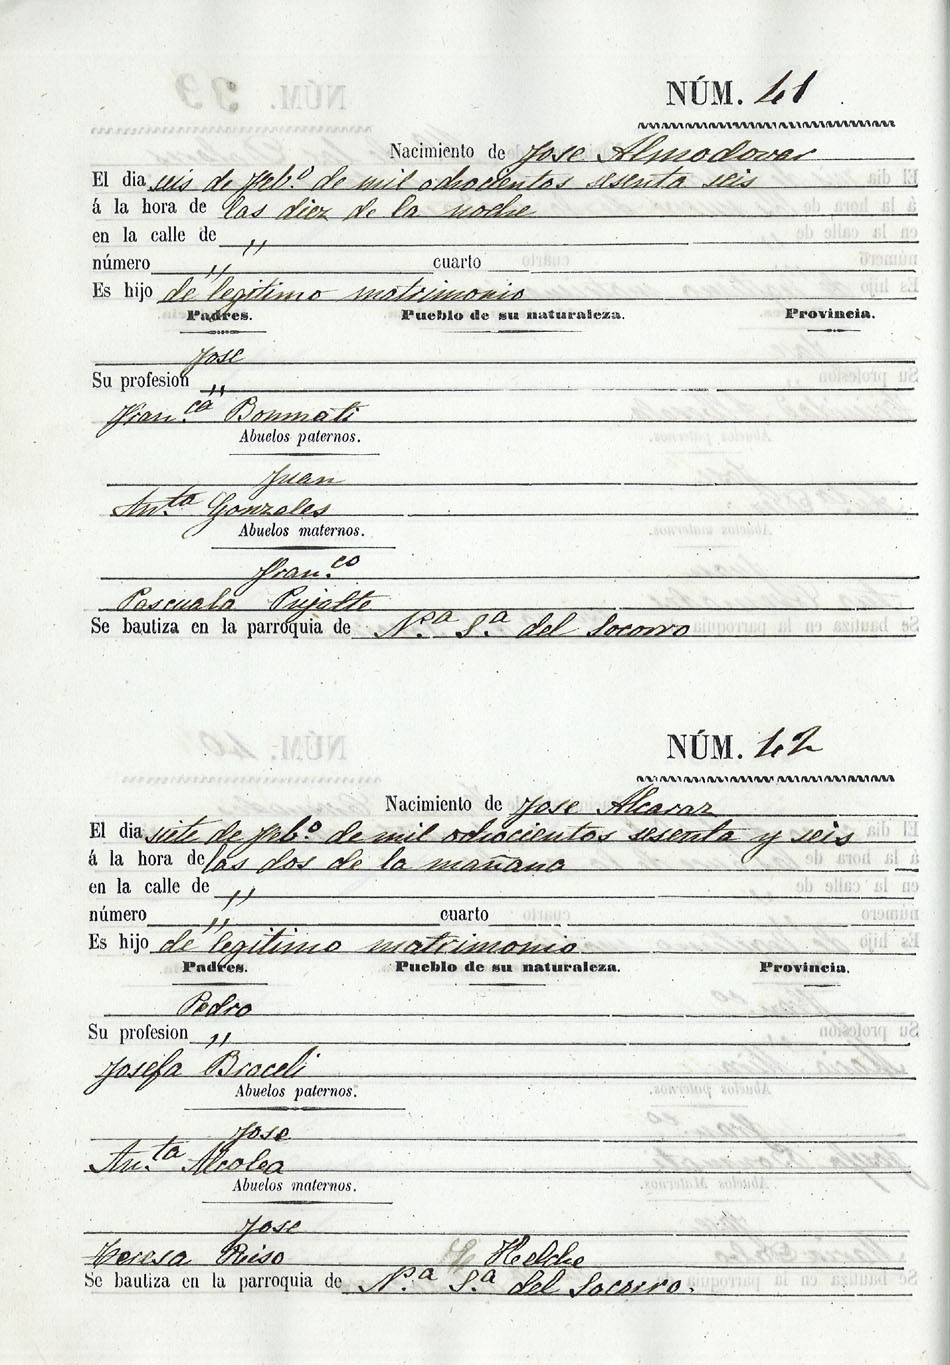 NÚM. 41
Nacimiento de Jose Almodovar
El dia seis de Feb.º de mil odhocientos sesenta seis
á la hora de las diez de la noche
en la calle de "
número " cuarto
Es hijo de legitimo matrimonio
Padres. Pueblo de su naturaleza. Provincia.
Jose
Su profesion "
Fran.ca Bonmati
Abuelos paternos.
Juan
An.ta Gonzales
Abuelos maternos.
Fran.co
Pascuala Pujalte
Se bautiza en la parroquia de N.ª S.ª del Socorro
NÚM. 42
Nacimiento de Jose Alcaraz
El dia siete de Feb.º de mil odhocientos sesenta y seis
á la hora de las dos de la mañana
en la calle de "
número " cuarto
Es hijo de legitimo matrimonio
Padres. Pueblo de su naturaleza. Provincia.
Pedro
Su profesion "
Josefa Broceli
Abuelos paternos.
Jose
An.ta Alcolea
Abuelos maternos.
Jose
Teresa Riso Helche
Se bautiza en la parroquia de N.ª S.ª del Socorro.